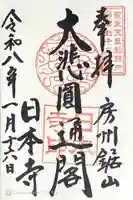 奉拝
房州鋸山
大悲圓通閣
日本寺
令和八年一月十六日